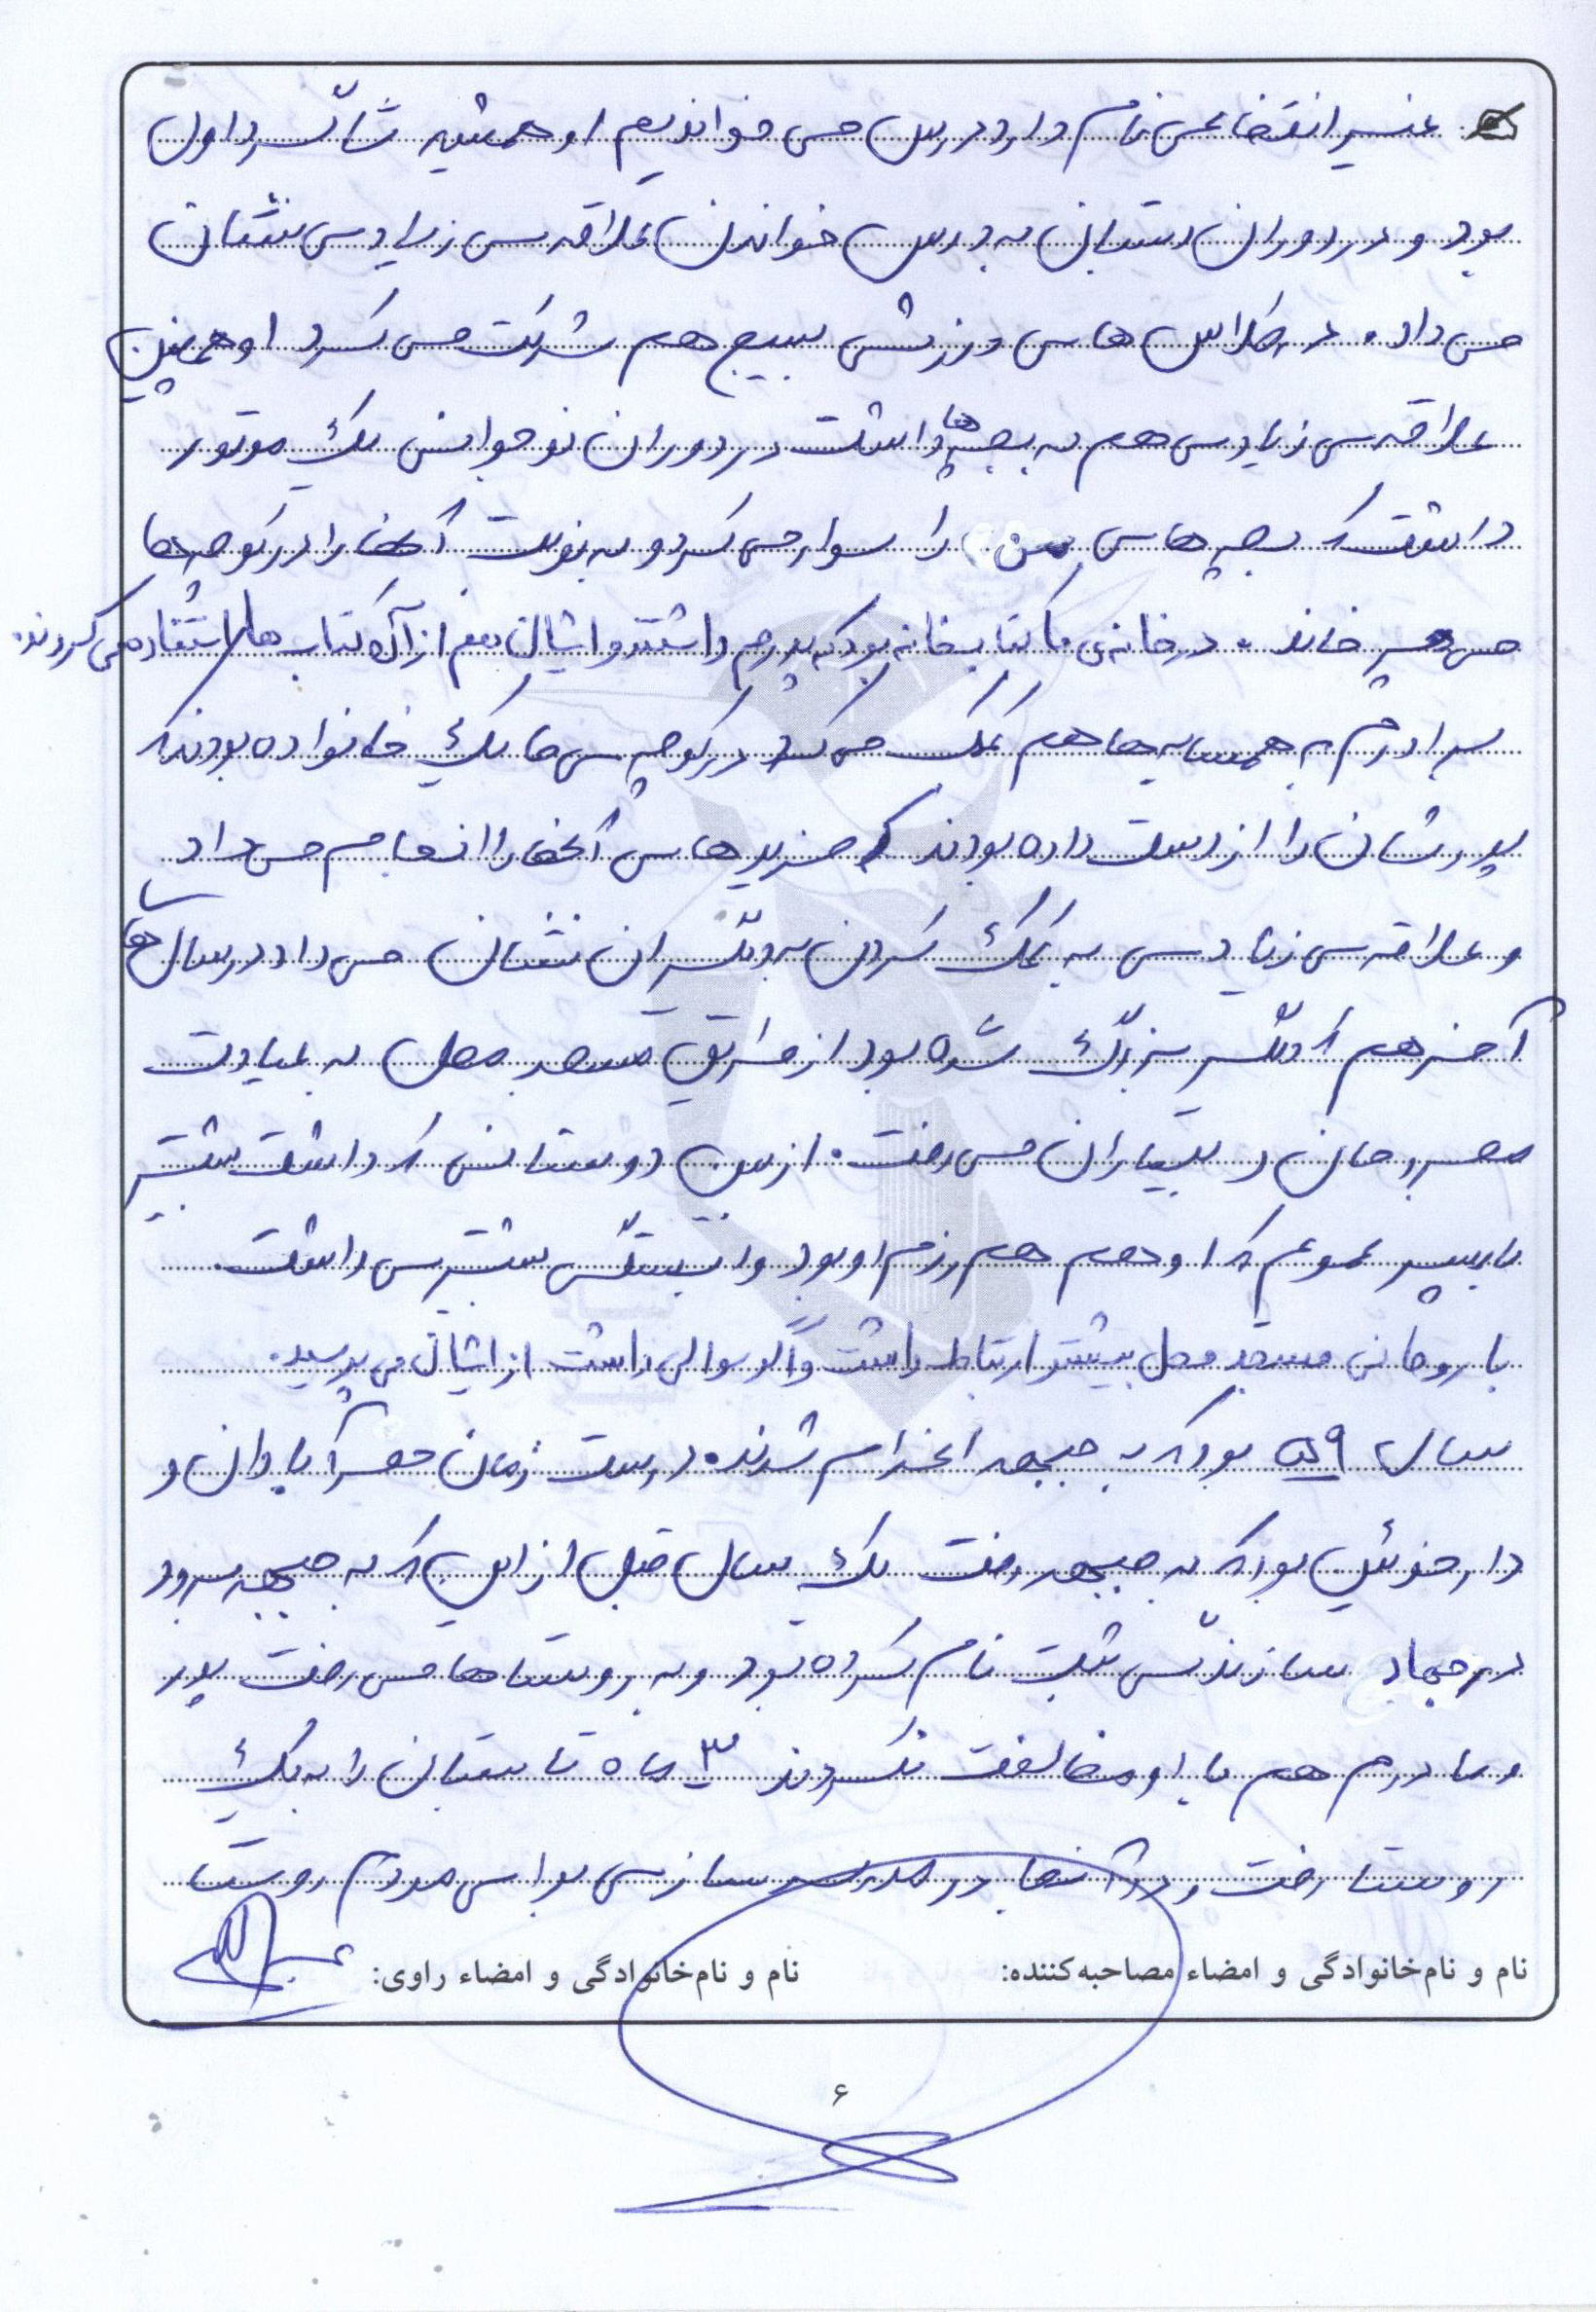 غیر انتفاعی بنام داود درس می خواندیم او همیشه شاگرد اول
بود و در دوران دبستان به درس خواندن علاقه ی زیادی نشان
می داد. در کلاس های ورزشی بسیج هم شرکت می کرد او همچنین
علاقه ی زیادی هم به بچه ها داشت در دوران نوجوانی یک موتور
داشت که بچه های را سوار می کرد و به نوبت آنها را در کوچه ها
می چرخاند. در خانه ی ما کتابخانه بود که پدرم داشتند و ایشان هم از آن کتاب ها استفاده می کردند.
برادرم به همسایه ها هم کمک می کرد در کوچه ی ما یک خانواده بودند که
پدرشان را از دست داده بودند که خریدهای آنها را انجام می داد
و علاقه ی زیادی به کمک کردن به دیگران نشان می داد در سال های
آخر هم که دیگر بزرگ شده بود از طریق مسجد محل به عیادت
مجروحان و بیماران می رفت. از بین دوستانی که داشت بیشتر
با پسر عمویم که او هم هم رزم او بود وابستگی بیشتری داشت.
با روحانی مسجد محل بیشتر ارتباط داشت و اگر سوالی داشت از ایشان می پرسید.
سال ۵۹ بود که به جبهه اعزام شدند. درست زمان حصر آبادان و
دارخوئین بود که به جبهه رفت یک سال قبل از این که به جبهه برود
در جهاد سازندگی ثبت نام کرده بود و به روستاها می رفت پدر
و مادرم هم با او مخالفت نکردند ۳ ماه تابستان را به یک
روستا رفت و در آنجا در مدرسه سازی برای مردم روستا
نام و نام‌خانوادگی و امضاء مصاحبه‌کننده: نام و نام‌خانوادگی و امضاء راوی:
۶